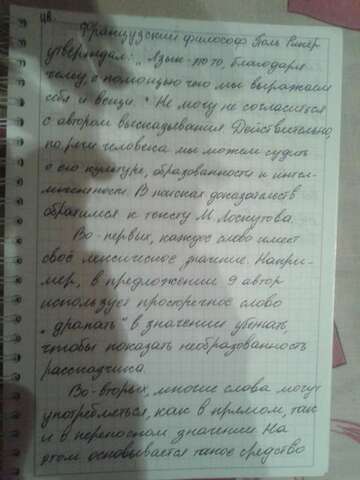 48.
Французский философ Поль Рикёр
утверждал: "Язык - это то, благодаря
чему, с помощью чего мы выражаем
себя и вещи." Не могу не согласиться
с автором высказывания. Действительно,
по речи человека мы можем судить
о его культуре, образованности и интел-
лигентности. В поисках доказательств
обратимся к тексту М. Лоскутова.
Во-первых, каждое слово имеет
своё лексическое значение. Напри-
мер, в предложении 9 автор
использует просторечное слово
"драпать" в значении убежать,
чтобы показать необразованность
рассказчика.
Во-вторых, многие слова могут
употребляться, как в прямом, так
и в переносном значении. На
этом основывается такое средство